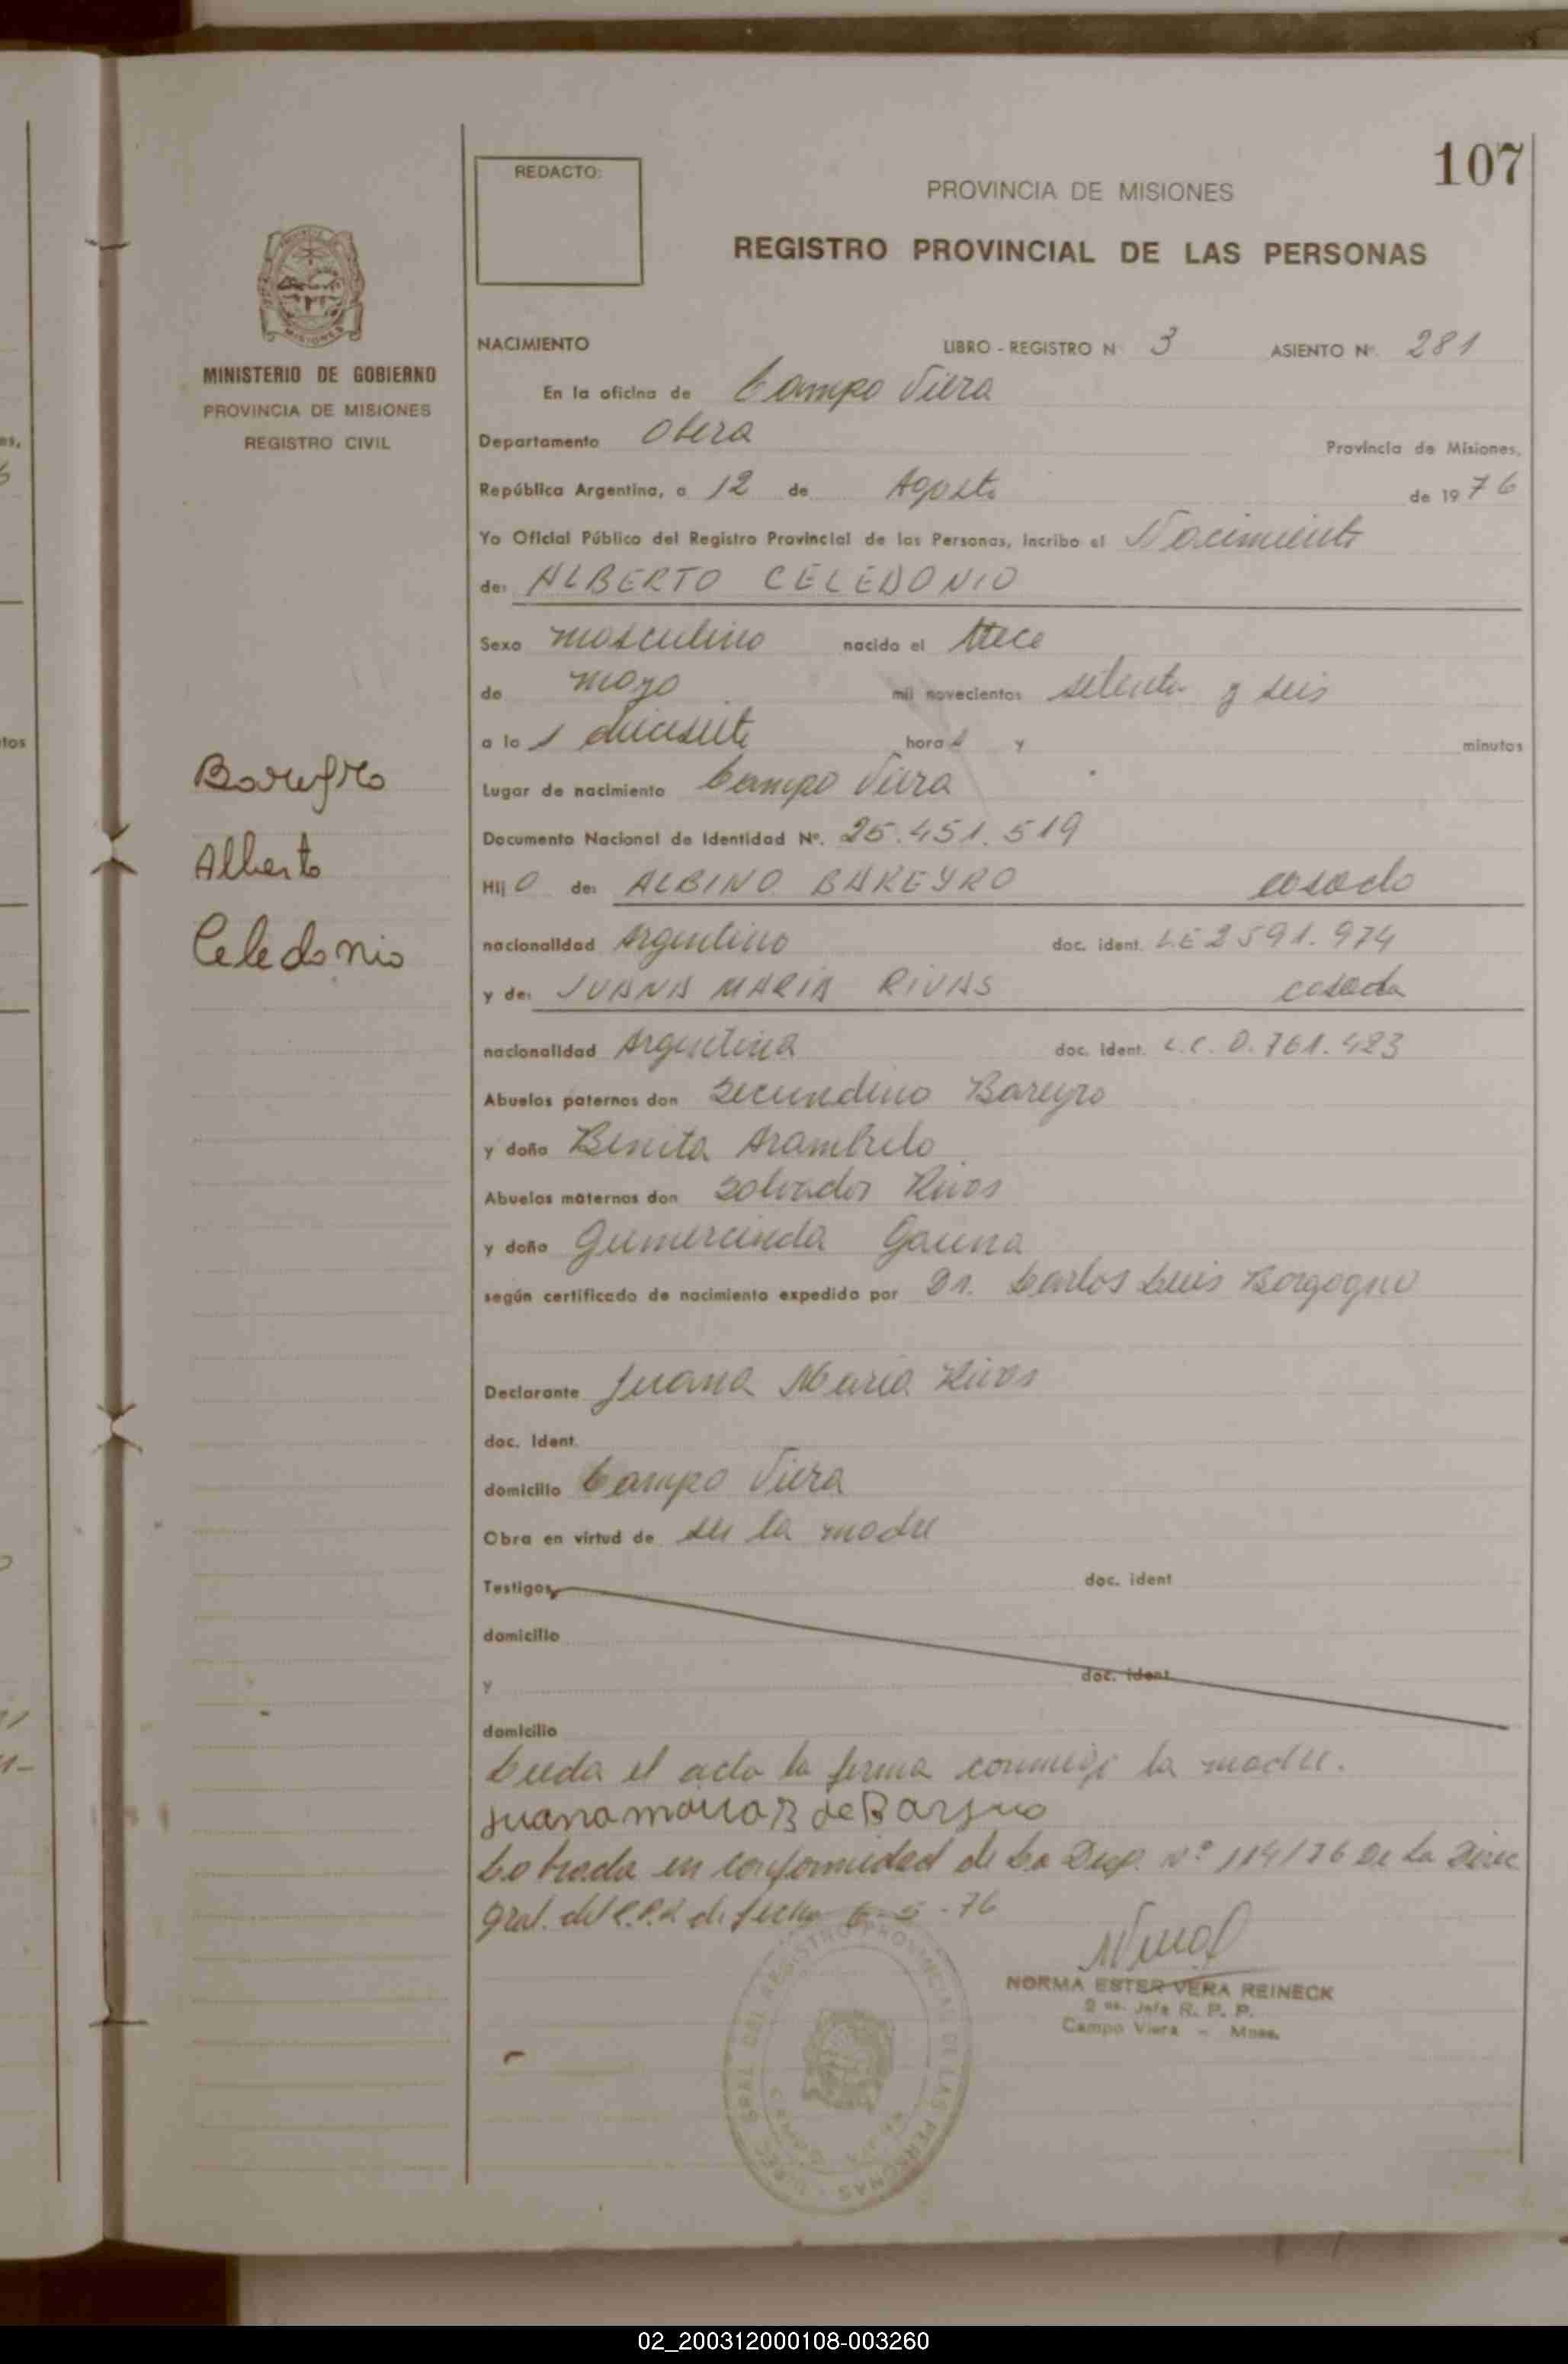 107
REDACTO:
PROVINCIA DE MISIONES
REGISTRO PROVINCIAL DE LAS PERSONAS
MISIONES
MINISTERIO DE GOBIERNO
PROVINCIA DE MISIONES
REGISTRO CIVIL
Bareyro
Alberto
Celedonio
NACIMIENTO LIBRO - REGISTRO N 3 ASIENTO Nº. 281
En la oficina de Campo Viera
Departamento Obera Provincia de Misiones,
República Argentina, a 12 de Agosto de 1976
Yo Oficial Público del Registro Provincial de las Personas, incribo el Nacimiento
de: ALBERTO CELEDONIO
Sexo masculino nacido el trece
de mayo mil novecientos setenta y seis
a las diecisiete horas y minutos
Lugar de nacimiento Campo Viera
Documento Nacional de Identidad Nº. 25.451.519
Hijo de: ALBINO BAREYRO casado
nacionalidad Argentino doc. ident. LE 2591.974
y de: JUANA MARIA RIVAS casada
nacionalidad Argentina doc. ident. L.C. 0.761.423
Abuelos paternos don Secundino Bareyro
y doña Benita Arambulo
Abuelos maternos don Salvador Rivas
y doña Gumercinda Gauna
según certificado de nacimiento expedido por Dr. Carlos Luis Borgogno
Declarante Juana Maria Rivas
doc. Ident.
domicilio Campo Viera
Obra en virtud de ser la madre
Testigos doc. ident
domicilio
y doc. ident
domicilio
Leida el acta la firma conmigo la madre.
Juana maria R de Bareyro
Labrada en conformidad de la Disp. Nº 114/76 De la Direc
Gral. del R.P.P. de fecha 6-5-76
NORMA ESTER VERA REINECK
Jefa R. P. P.
Campo Viera - Mnes.
REGISTRO PROVINCIAL DE LAS PERSONAS
02_200312000108-003260